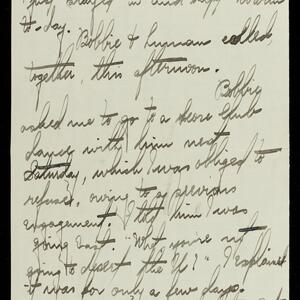 to-day.
Bobbie & Lyman called,
together, this afternoon.
Bobbie
asked me to go to a Score Club
dance with him next
Saturday, which I was obliged to
refuse, owing to a previous
engagement. I told him I was
going East. "What you're not
going to desert the U!" I explained
it was for only a few days.